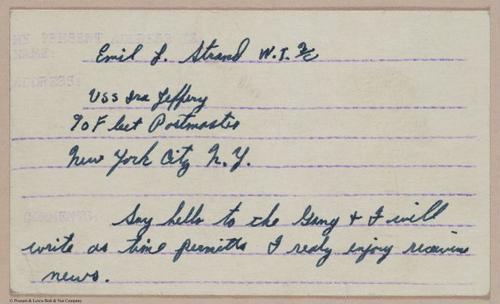 MY PRESENT ADDRESS IS
NAME: Emil L. Strand W.T. 3/c
ADDRESS:
USS Ira Jeffery
% Fleet Postmaster
New York City N.Y.
COMMENTS: Say hello to the Gang & I will
write as time permitts I realy enjoy receiving
news.
© Pioneer & Lewis Bolt & Nut Company